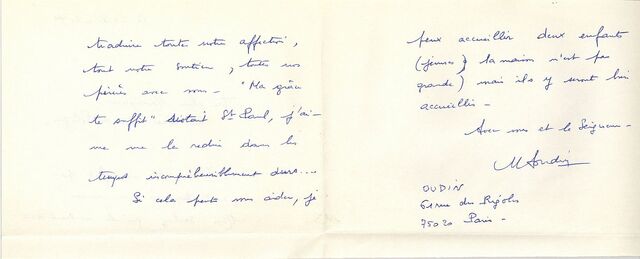 traduire toute notre affection,
tout notre soutien, toutes nos
prières avec vous. "Ma grâce
te suffit" disait St Paul, j'ai-
me me le redire dans les
temps incompréhensiblement durs...
Si cela peut vous aider, je
peux accueillir deux enfants
(jeunes) la maison n'est pas
grande) mais ils y seront bien
accueillis -
Avec vous et le Seigneur -
M Oudin
OUDIN
61 rue des Rigoles
75020 Paris -